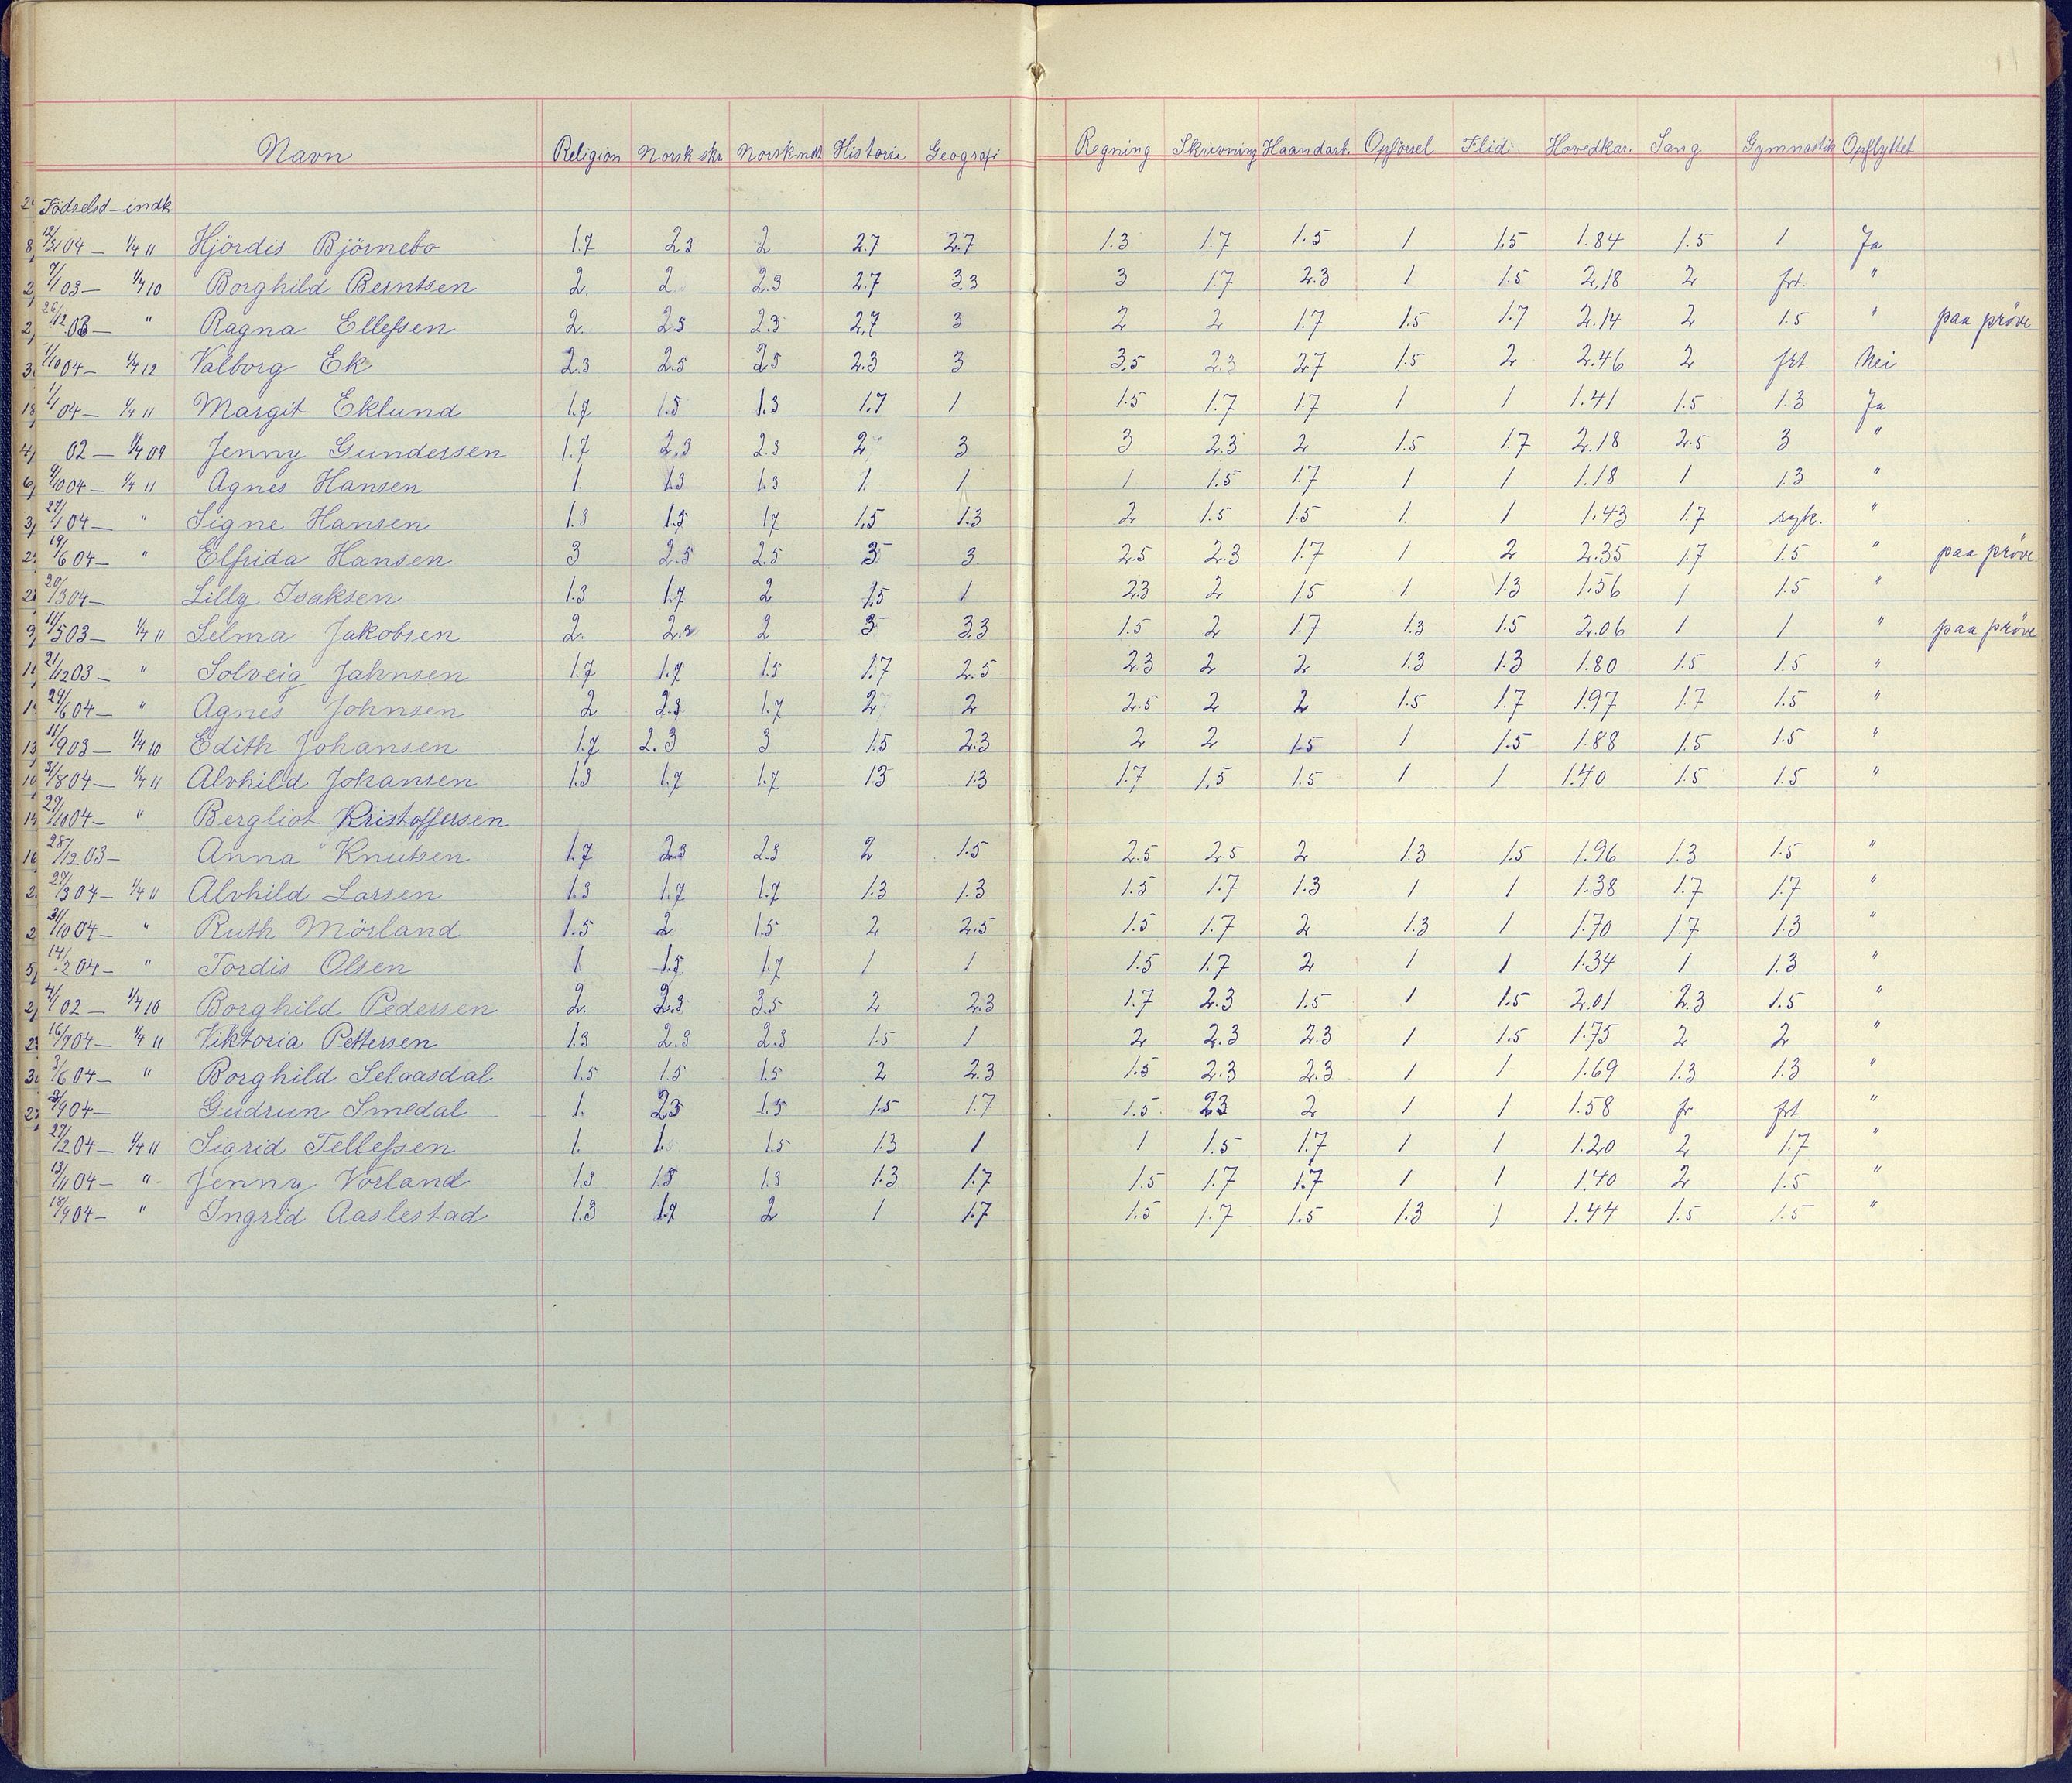 Navn Religion Norsk skr Norsk mdl Historie Geografi Regning Skrivning Haandarb. Opförsel Flid Hovedkar. Sang Gymnastik Opflyttet
Födselsd - indk
12/3 04 - 1/4 11 Hjördis Björnebo 1.7 2.3 2 2.7 2.7 1.3 1.7 1.5 1 1.5 1.84 1.5 1 Ja
7/1 03 - 1/4 10 Borghild Berntsen 2. 2 2.3 2.7 3.3 3 1.7 2.3 1 1.5 2.18 2 frt. "
26/12 03 - " Ragna Ellefsen 2. 2.5 2.3 2.7 3 2 2 1.7 1.5 1.7 2.14 2 1.5 " paa pröve
1/10 04 - 1/4 12 Valborg Ek 2.3 2.5 2.5 2.3 3 3.5 2.3 2.7 1.5 2 2.46 2 frt. Nei
04 - 1/4 11 Margit Eklund 1.7 1.5 1.3 1.7 1 1.5 1.7 1.7 1 1 1.41 1.5 1.3 Ja
02 - 1/4 09 Jenny Gundersen 1.7 2.3 2.3 2 3 3 2.3 2 1.5 1.7 2.18 2.5 3 "
9/10 04 - 1/4 11 Agnes Hansen 1. 1.3 1.3 1. 1 1 1.5 1.7 1 1 1.18 1 1.3 "
04 - " Signe Hansen 1.3 1.5 1.7 1.5 1.3 2 1.5 1.5 1 1 1.43 1.7 syk. "
19/6 04 - " Elfrida Hansen 3 2.5 2.5 3 3 2.5 2.3 1.7 1 2 2.35 1.7 1.5 " paa pröve
20/3 04 - Lilly Isaksen 1.3 1.7 2 1.5 1 2.3 2 1.5 1 1.3 1.56 1 1.5 "
11/5 03 - 1/4 11 Selma Jakobsen 2. 2.3 2 3 3.3 1.5 2 1.7 1.3 1.5 2.06 1 1 " paa pröve
21/12 03 - " Solveig Jahnsen 1.7 1.7 1.5 1.7 2.5 2.3 2 2 1.3 1.3 1.80 1.5 1.5 "
24/6 04 - " Agnes Johnsen 2 2.3 1.7 2 2 2.5 2 2 1.5 1.7 1.97 1.7 1.5 "
11/9 03 - 1/4 10 Edith Johansen 1.7 2.3 3 1.5 2.3 2 2 1.5 1 1.5 1.88 1.5 1.5 "
31/8 04 - 1/4 11 Alvhild Johansen 1.3 1.7 1.7 1.3 1.3 1.7 1.5 1.5 1 1 1.40 1.5 1.5 "
27/10 04 - " Bergliot Kristoffersen
28/12 03 - Anna Knutsen 1.7 2.3 2.3 2 1.5 2.5 2.5 2 1.3 1.5 1.96 1.3 1.5 "
27/3 04 - 1/4 11 Alvhild Larsen 1.3 1.7 1.7 1.3 1.3 1.5 1.7 1.3 1 1 1.38 1.7 1.7 "
31/10 04 - " Ruth Mörland 1.5 2 1.5 2 2.5 1.5 1.7 2 1.3 1 1.70 1.7 1.3 "
14/2 04 - " Tordis Olsen 1. 1.5 1.7 1 1 1.5 1.7 2 1 1 1.34 1 1.3 "
4/1 02 - 1/4 10 Borghild Pedersen 2. 2.3 3.5 2 2.3 1.7 2.3 1.5 1 1.5 2.01 2.3 1.5 "
04 - 1/4 11 Viktoria Pettersen 1.3 2.3 2.3 1.5 1 2 2.3 2.3 1 1.5 1.75 2 2 "
3/6 04 - " Borghild Selaasdal 1.5 1.5 1.5 2 2.3 1.5 2.3 2.3 1 1 1.69 1.3 1.3 "
04 - Gudrun Smedal 1. 2.3 1.5 1.5 1.7 1.5 2.3 2 1 1 1.58 fr frt. "
27/12 04 - 1/4 11 Sigrid Tellefsen 1. 1. 1.5 1.3 1 1 1.5 1.7 1 1 1.20 2 1.7 "
13/11 04 - " Jenny Vorland 1.3 1.5 1.3 1.3 1.7 1.5 1.7 1.7 1 1 1.40 2 1.5 "
18/9 04 - " Ingrid Aaslestad 1.3 1.7 2 1 1.7 1.5 1.7 1.5 1.3 1 1.44 1.5 1.5 "